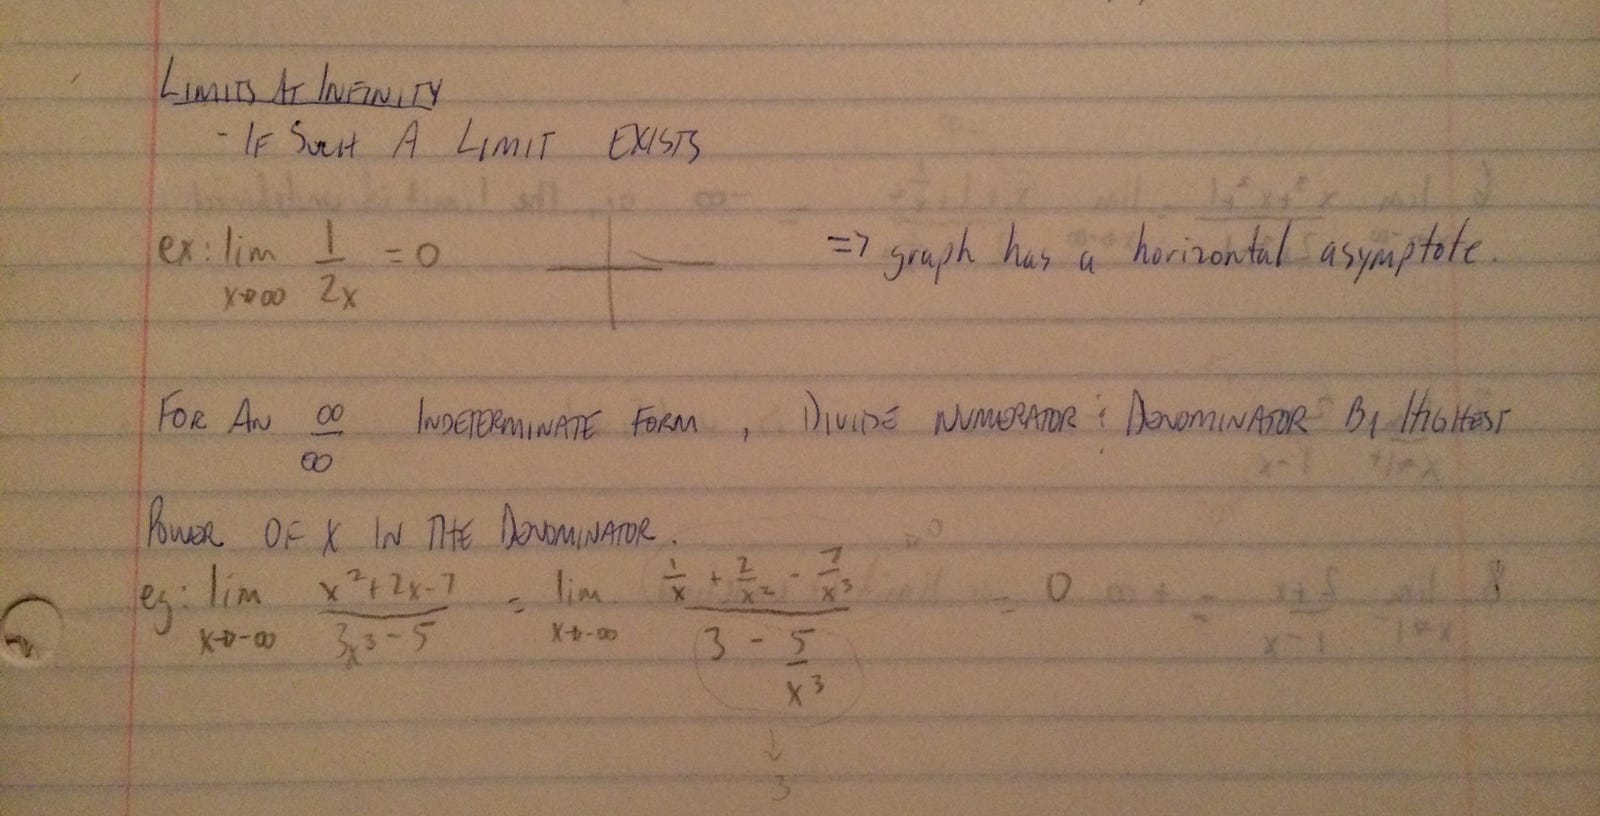 LIMITS AT INFINITY
- IF SUCH A LIMIT EXISTS
ex: lim x→∞ 1/2x = 0 => graph has a horizontal asymptote.
FOR AN ∞/∞ INDETERMINATE FORM, DIVIDE NUMERATOR & DENOMINATOR BY HIGHEST
POWER OF X IN THE DENOMINATOR.
eg: lim x→-∞ (x²+2x-7)/(3x³-5) = lim x→-∞ (1/x + 2/x² - 7/x³)/(3 - 5/x³) = 0
↓
3